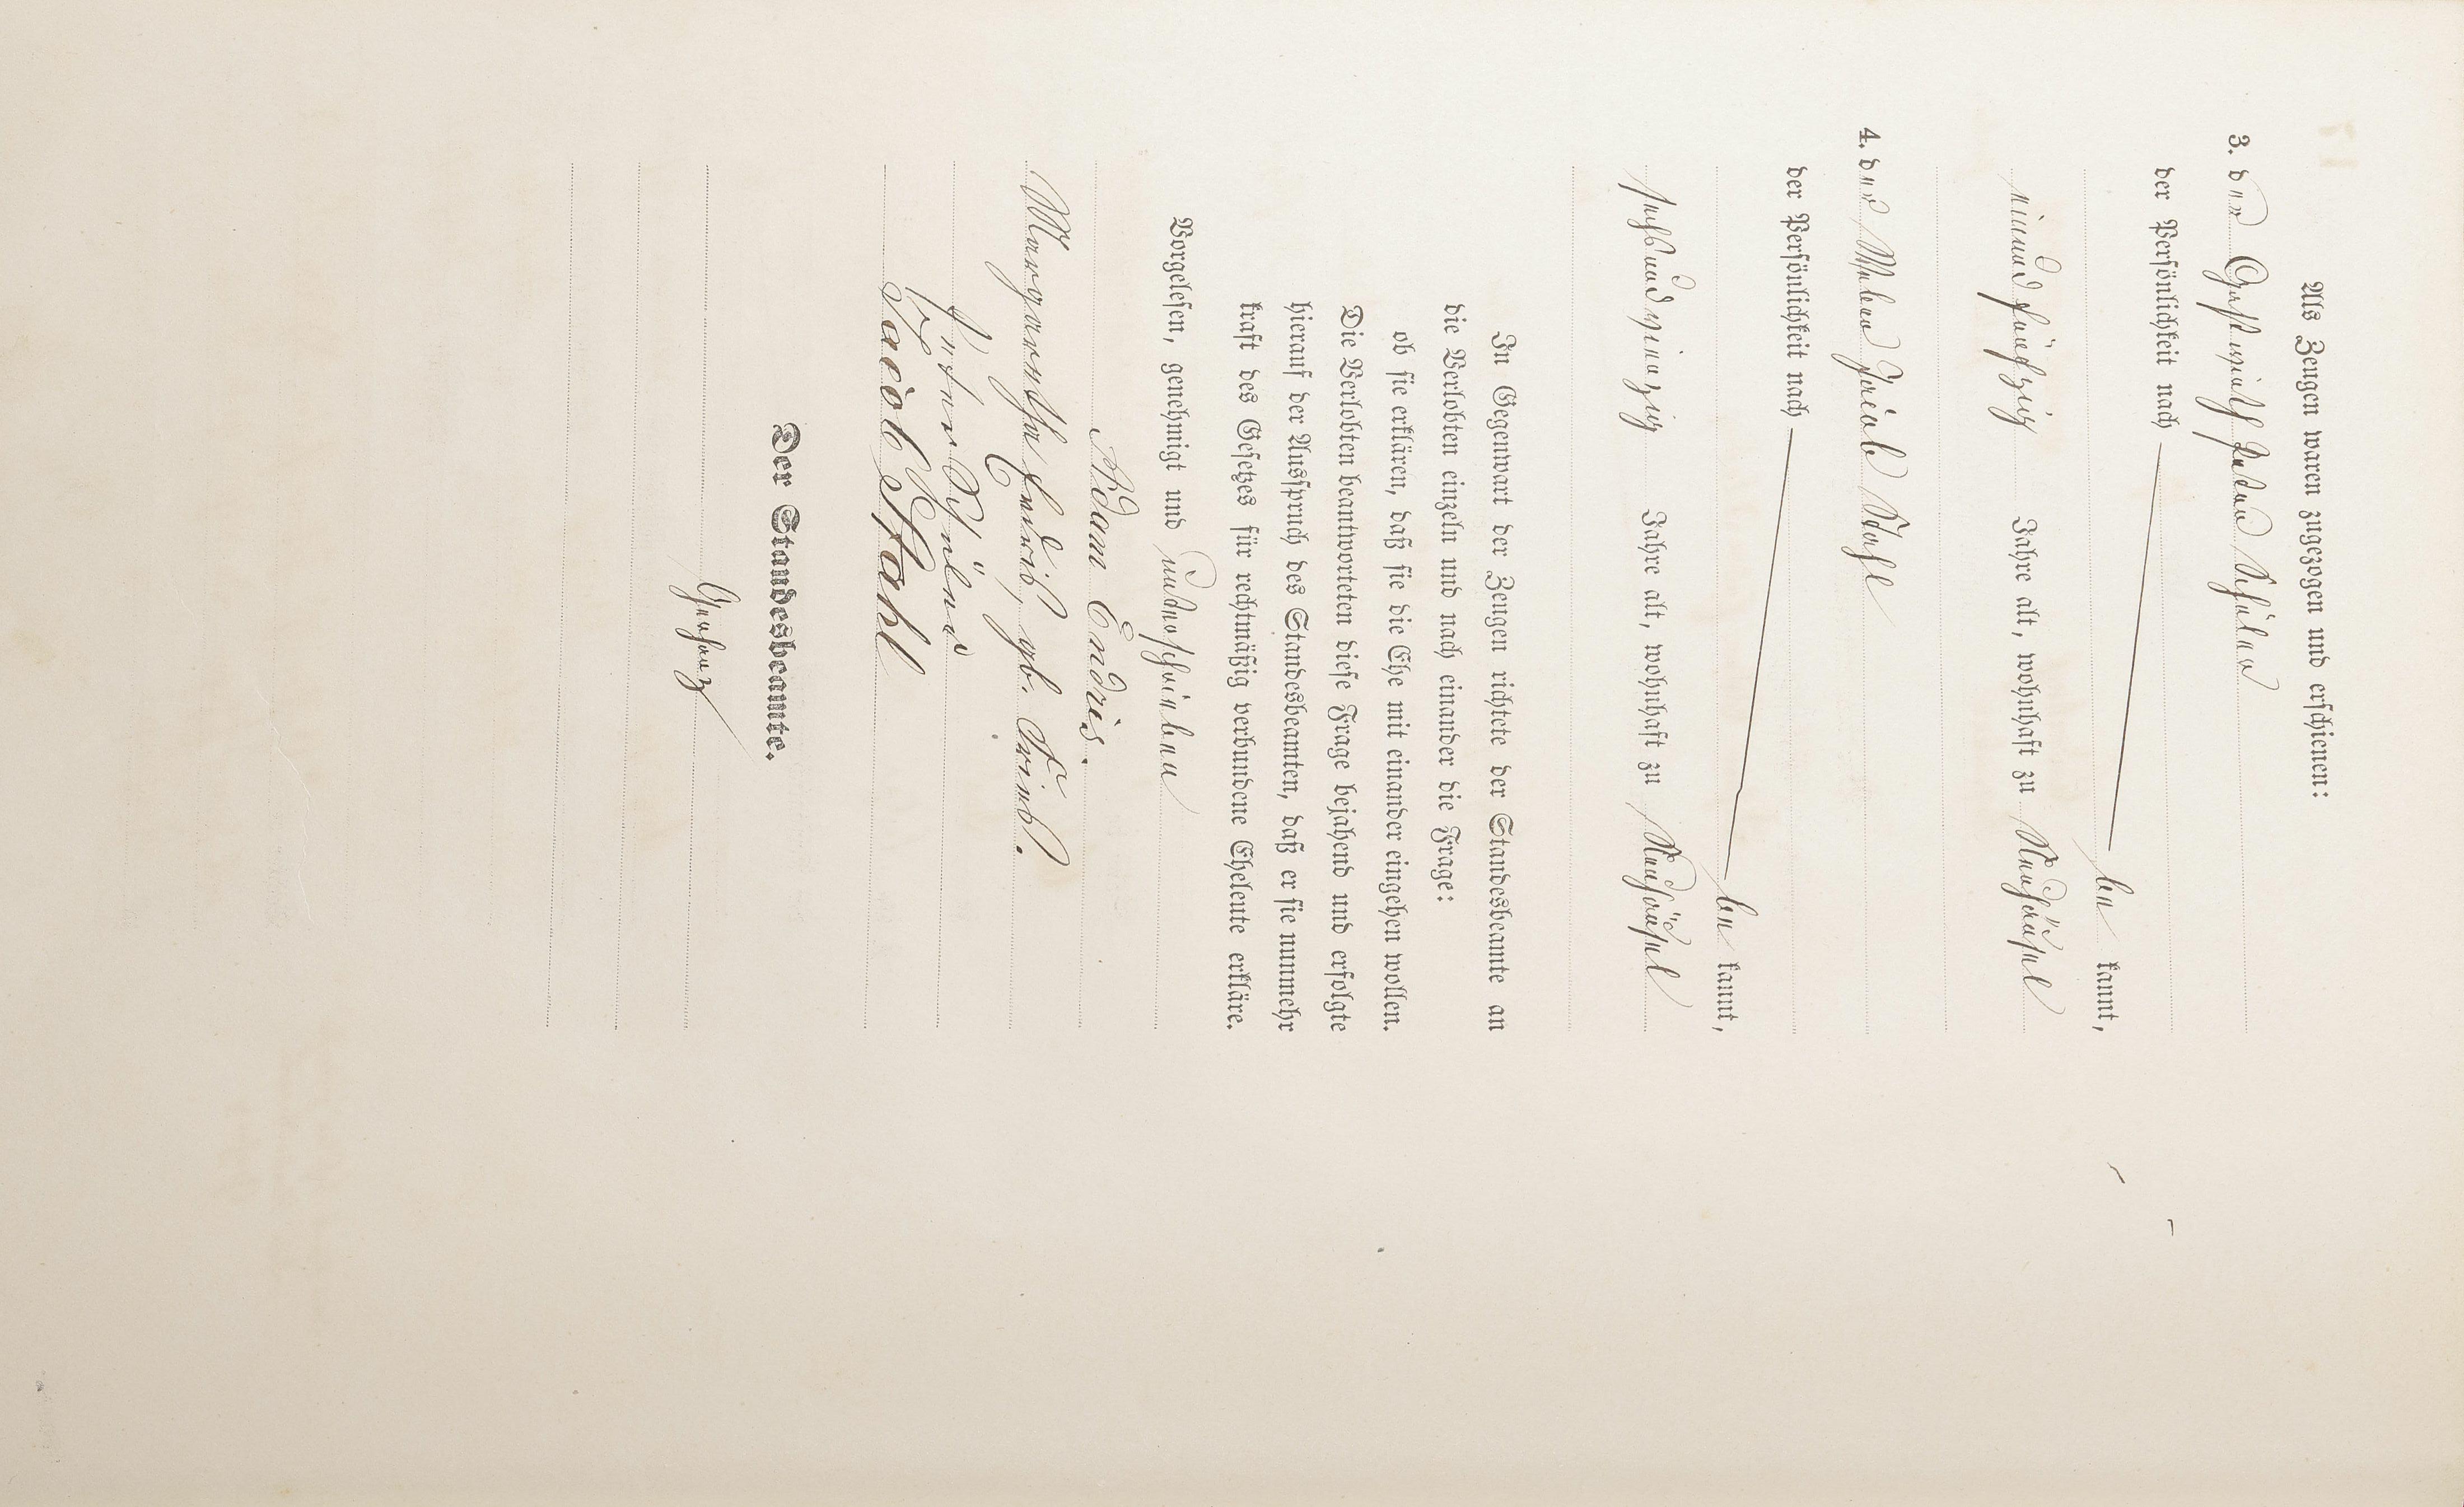 Als Zeugen waren zugezogen und erschienen:
3. der Gastwirth Peter Schüler
der Persönlichkeit nach
be kannt,
einundfünfzig Jahre alt, wohnhaft zu Neuhäusel
4. der Weber Jacob Stahl
der Persönlichkeit nach
be kannt,
sechsundvierzig Jahre alt, wohnhaft zu Neuhäusel
In Gegenwart der Zeugen richtete der Standesbeamte an
die Verlobten einzeln und nach einander die Frage:
ob sie erklären, daß sie die Ehe mit einander eingehen wollen.
Die Verlobten beantworteten diese Frage bejahend und erfolgte
hierauf der Ausspruch des Standesbeamten, daß er sie nunmehr
kraft des Gesetzes für rechtmäßig verbundene Eheleute erkläre.
Vorgelesen, genehmigt und unterschrieben
Adam Endris.
Margaretha Endris, gb.
Peter Schüler
Jacob Stahl
Der Standesbeamte.